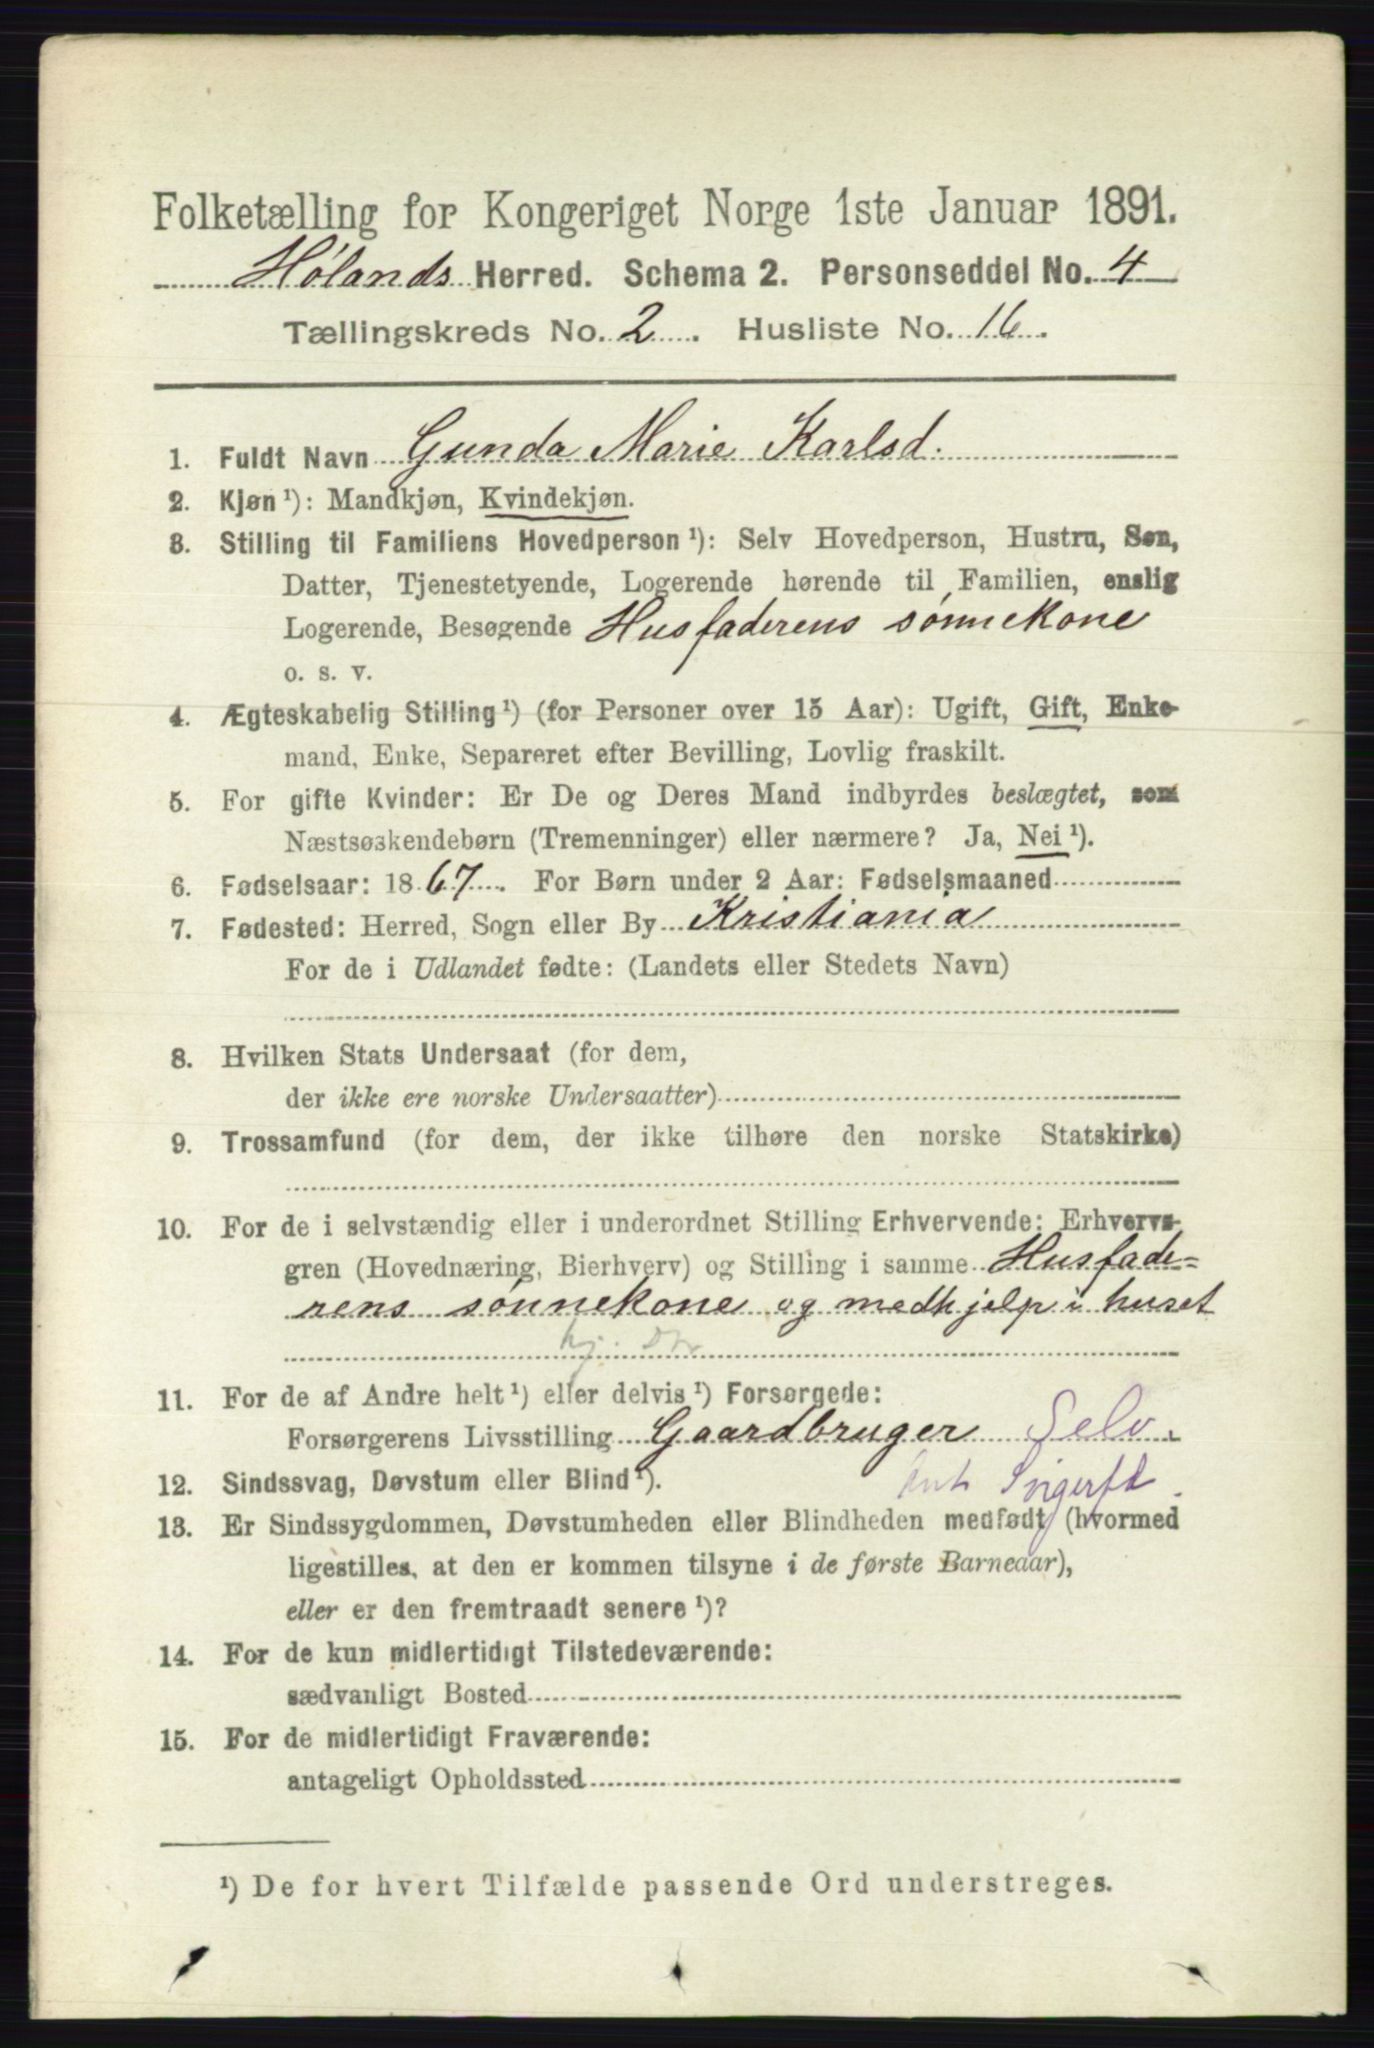 Folketælling for Kongeriget Norge 1ste Januar 1891.
Hølands Herred. Schema 2. Personseddel No. 4
Tællingskreds No. 2. Husliste No. 16.
1. Fuldt Navn Gunda Marie Karlsd.
2. Kjøn¹): Mandkjøn, Kvindekjøn.
3. Stilling til Familiens Hovedperson¹): Selv Hovedperson, Hustru, Søn,
Datter, Tjenestetyende, Logerende hørende til Familien, enslig
Logerende, Besøgende Husfaderens sønnekone
o. s. v.
4. Ægteskabelig Stilling¹) (for Personer over 15 Aar): Ugift, Gift, Enke-
mand, Enke, Separeret efter Bevilling, Lovlig fraskilt.
5. For gifte Kvinder: Er De og Deres Mand indbyrdes beslægtet, som
Næstsøskendebørn (Tremenninger) eller nærmere? Ja, Nei¹).
6. Fødselsaar: 1867. For Børn under 2 Aar: Fødselsmaaned
7. Fødested: Herred, Sogn eller By Kristiania
For de i Udlandet fødte: (Landets eller Stedets Navn)
8. Hvilken Stats Undersaat (for dem,
der ikke ere norske Undersaatter)
9. Trossamfund (for dem, der ikke tilhøre den norske Statskirke)
10. For de i selvstændig eller i underordnet Stilling Erhvervende: Erhvervs-
gren (Hovednæring, Bierhverv) og Stilling i samme Husfade-
rens sønnekone og medhjelp i huset
hj.
11. For de af Andre helt¹) eller delvis¹) Forsørgede:
Forsørgerens Livsstilling Gaardbruger Selv.
12. Sindssvag, Døvstum eller Blind¹).
13. Er Sindssygdommen, Døvstumheden eller Blindheden medfødt (hvormed
ligestilles, at den er kommen tilsyne i de første Barneaar),
eller er den fremtraadt senere¹)?
14. For de kun midlertidigt Tilstedeværende:
sædvanligt Bosted
15. For de midlertidigt Fraværende:
antageligt Opholdssted
¹) De for hvert Tilfælde passende Ord understreges.